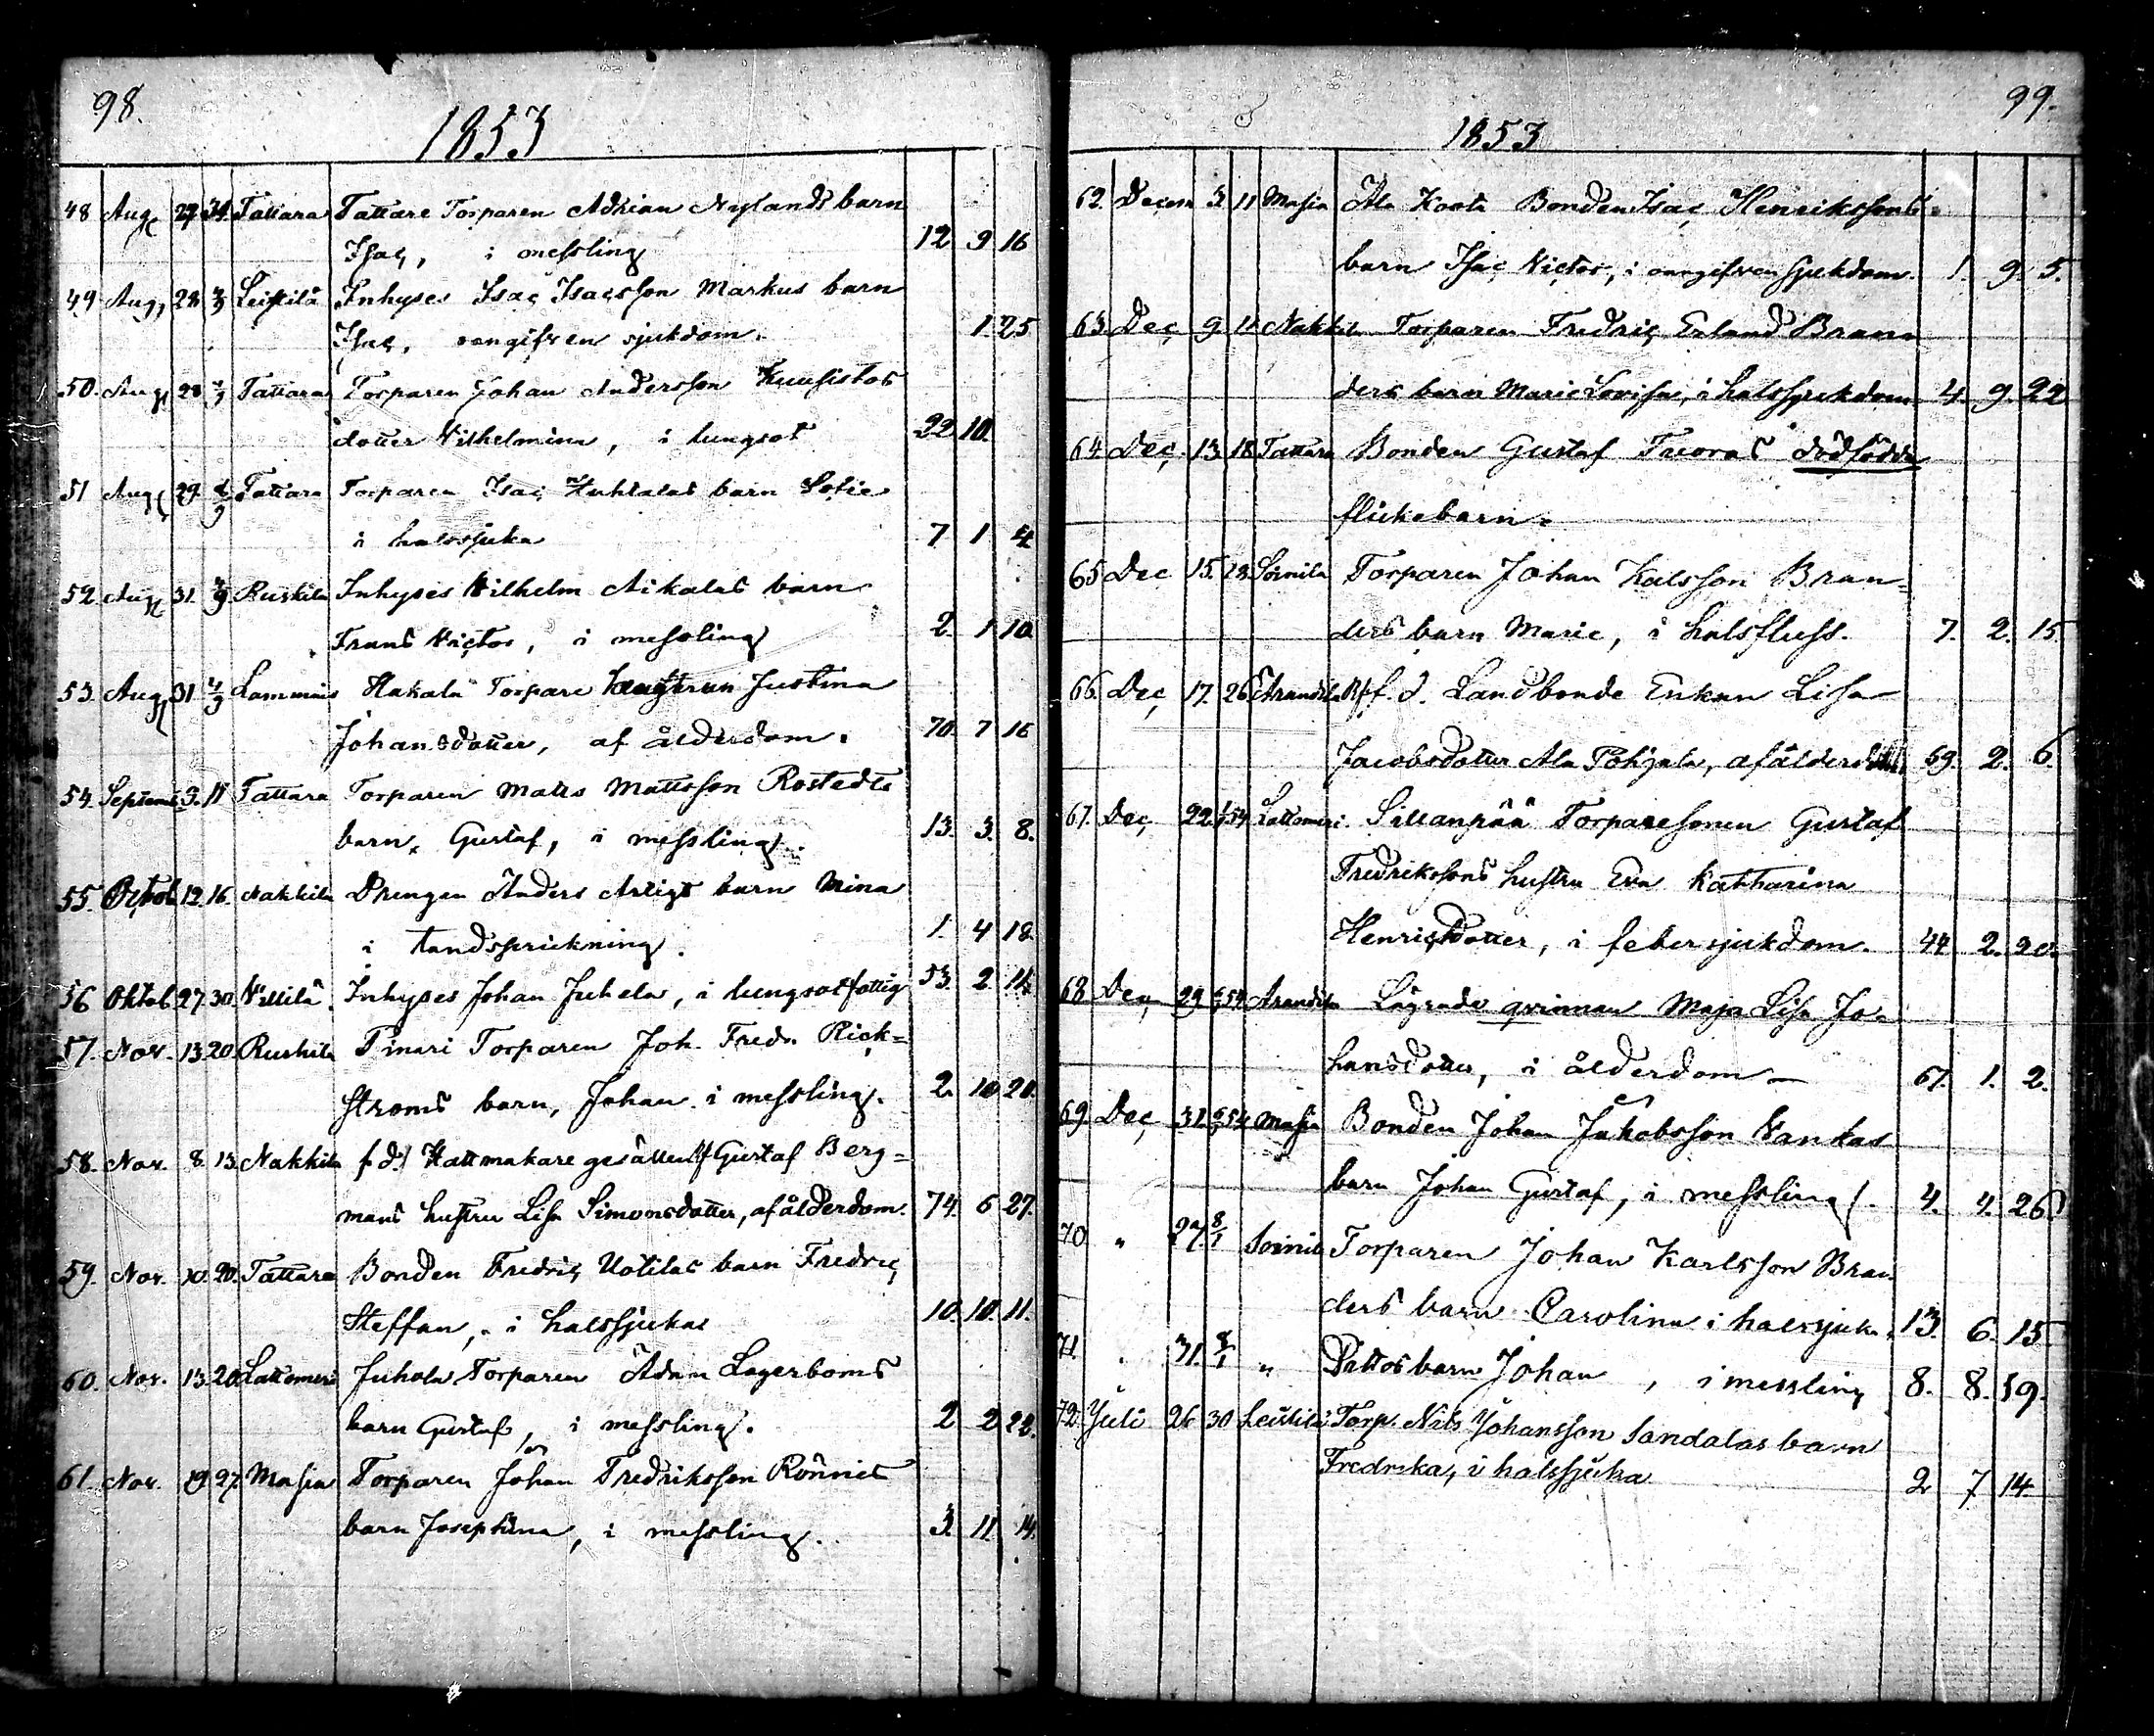 98.
1853
48 Aug 27 Tattara Tattare Torparen Adrian Nylands barn
Isac, i messling 12 9 16
49 Aug 28 Leistilä Inhyses Isac Isacsson Markus barn
Isac, oangifven sjukdom. 1. 25
50. Aug 28 Tattara Torparen Johan Andersson Kuusistos
dotter Vilhelmina, i lungsot 22 10.
51 Aug 29 Tattara Torparen Isac Huhtalas barn Sofie
i halssjuka 7 1 4
52. Aug 31. Ruskila Inhyses Vilhelm Aikalas barn
Frans Victor, i messling 2. 1 10
53. Aug 31 4/9 Lammais Hakala Torpare Justina
Johansdotter, af ålderdom. 70. 7 16
54. Septemb 3. 11 Tattara Torparen Matts Mattsson Rostedts
barn, Gustaf, i messling. 13. 3. 8.
55. Octob 12. 16. Nakkila Drengen Anders Artigs barn Mina
i tandsprickning. 1. 4 18.
56 Oktob 27 30. Villilä. Inhyses Johan Juhela, i lungsot fattig 53. 2 14
57. Nov. 13 20. Ruskila Pinari Torparen Joh. Fredr. Rick=
ströms barn, Johan i messling. 2. 10 20.
58. Nov. 8. 13. Nakkila f. d. Hattmakare gesällen Gustaf Berg=
mans hustru Lisa Simonsdotter, af ålderdom. 74. 6 27.
59. Nov. 10. 20. Tattara Bonden Fredric Uotilas barn Fredric
Steffan, i halssjuka 10. 10. 11.
60. Nov. 13. 20. Lattomeri Juhola Torparen Adam Lagerboms
barn Gustaf, i messling. 2 2 22.
61. Nov. 19 27. Masia Torparen Johan Fredriksson Rönnis
barn Josephina, i messling. 3. 11 14.
99.
1853
62. Decem 3 11 Masia Ala Koota Bonden Isac Henrikssons
barn Isac Victor, i oangifven sjukdom. 1. 9. 5.
63. Dec 9 11 Nakkila Torparen Fredric Erland Bran
ders barn Marie Lovisa, i halssjukdom 4. 9. 22
64 Dec. 13. 18 Tattara Bonden Gustaf Tuoras dödfödda
flickebarn.
65 Dec 15. 18. Soinila Torparen Johan Kalsson Bran=
ders barn Marie, i halsfluss. 7. 2. 15
66. Dec 17. 26 Arandila f. d. Landbonde Enkan Lisa
Jacobsdotter Ala Pohjala, af ålderdom 69. 2. 6.
67. Dec 22. 1/1 54 Lattomeri Sillanpää Torparesonen Gustaf
Fredrikssons hustru Eva Katharina
Henricsdotter, i febersjukdom. 44 2. 20.
68. Dec 29 54 Arandila Lägrade qvinnan Maja Lisa Jo=
hansdotter, i ålderdom 67. 1. 2.
69. Dec 31. 54 Masia Bonden Johan Jakobsson Vantas
barn Johan Gustaf, i messling. 4. 4. 26
70 " 27 8/1 Soinila Torparen Johan Karlsson Bran
ders barn Carolina i halssjuka. 13. 6. 15
71. . 31. 8/1 " Dittos barn Johan, i messling 8. 8. 19.
72. Juli 26 30 Leistilä Torp. Nils Johansson Sandalas barn
Fredrika, i halssjuka 2 7 14.